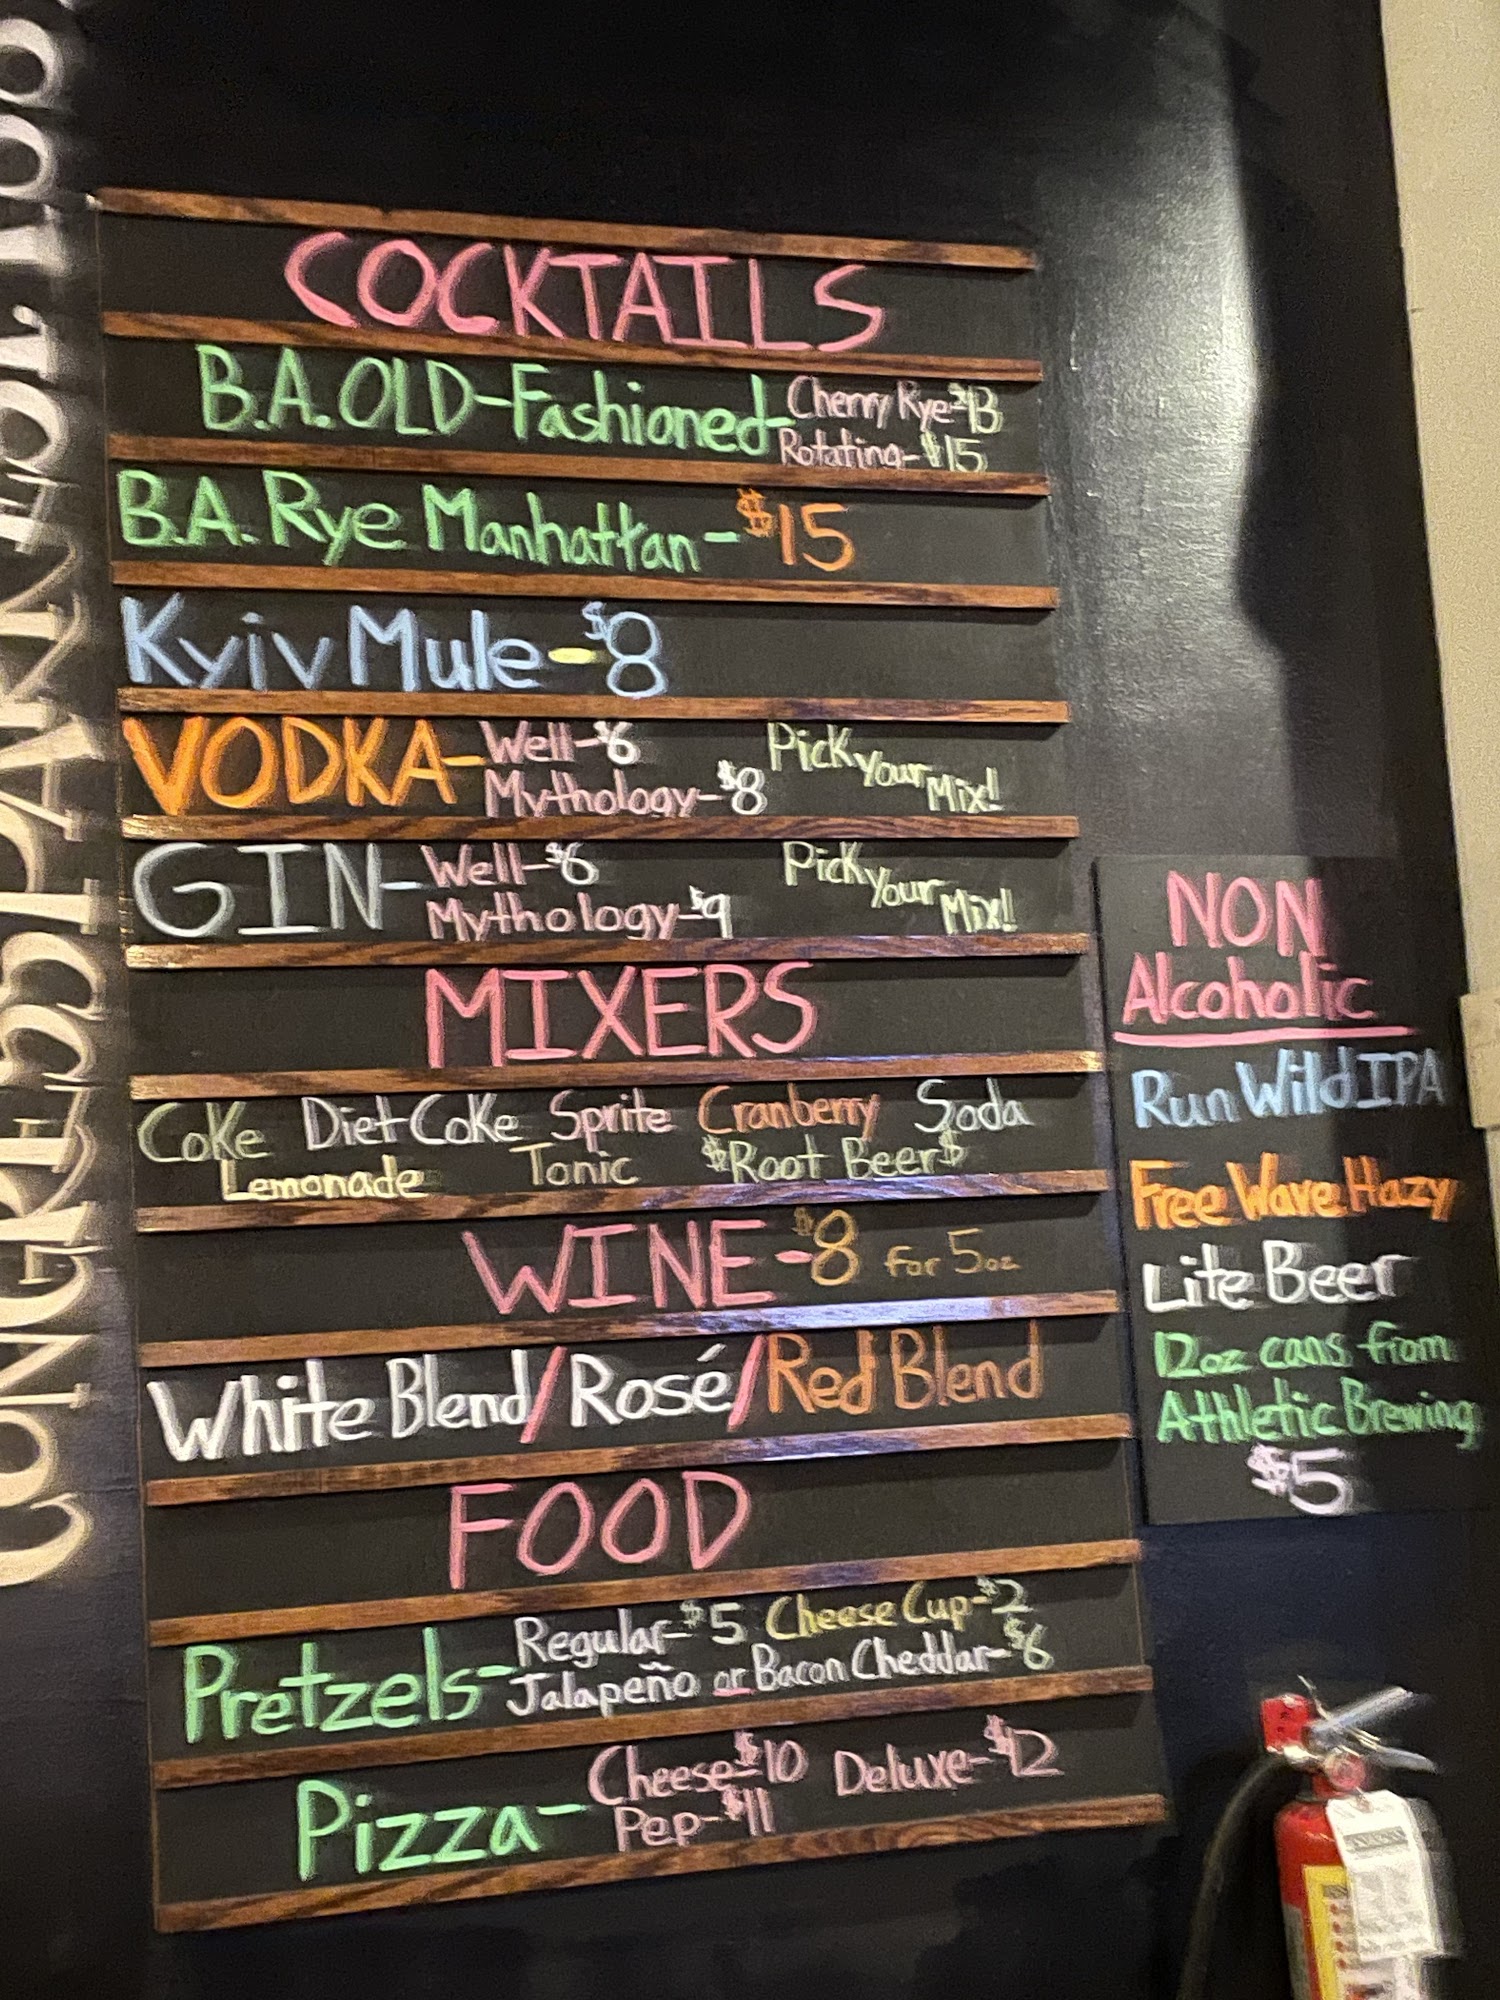 COCKTAILS
B.A. OLD-Fashioned- Cherry Rye-$13
Rotating-$15
B.A. Rye Manhattan-$15
Kyiv Mule-$8
VODKA- Well-$6 Pick your Mix!
Mythology-$8
GIN- Well-$6 Pick your Mix!!
Mythology-$9
MIXERS
Coke Diet Coke Sprite Cranberry Soda
Lemonade Tonic $Root Beer$
WINE-$8 for 5oz
White Blend/Rosé/Red Blend
FOOD
Pretzels- Regular-$5 Cheese Cup-$2
Jalapeño or Bacon Cheddar-$6
Pizza- Cheese-$10 Deluxe-$12
Pep-$11
NON
Alcoholic
Run Wild IPA
Free Wave Hazy
Lite Beer
12oz cans from
Athletic Brewing
$5